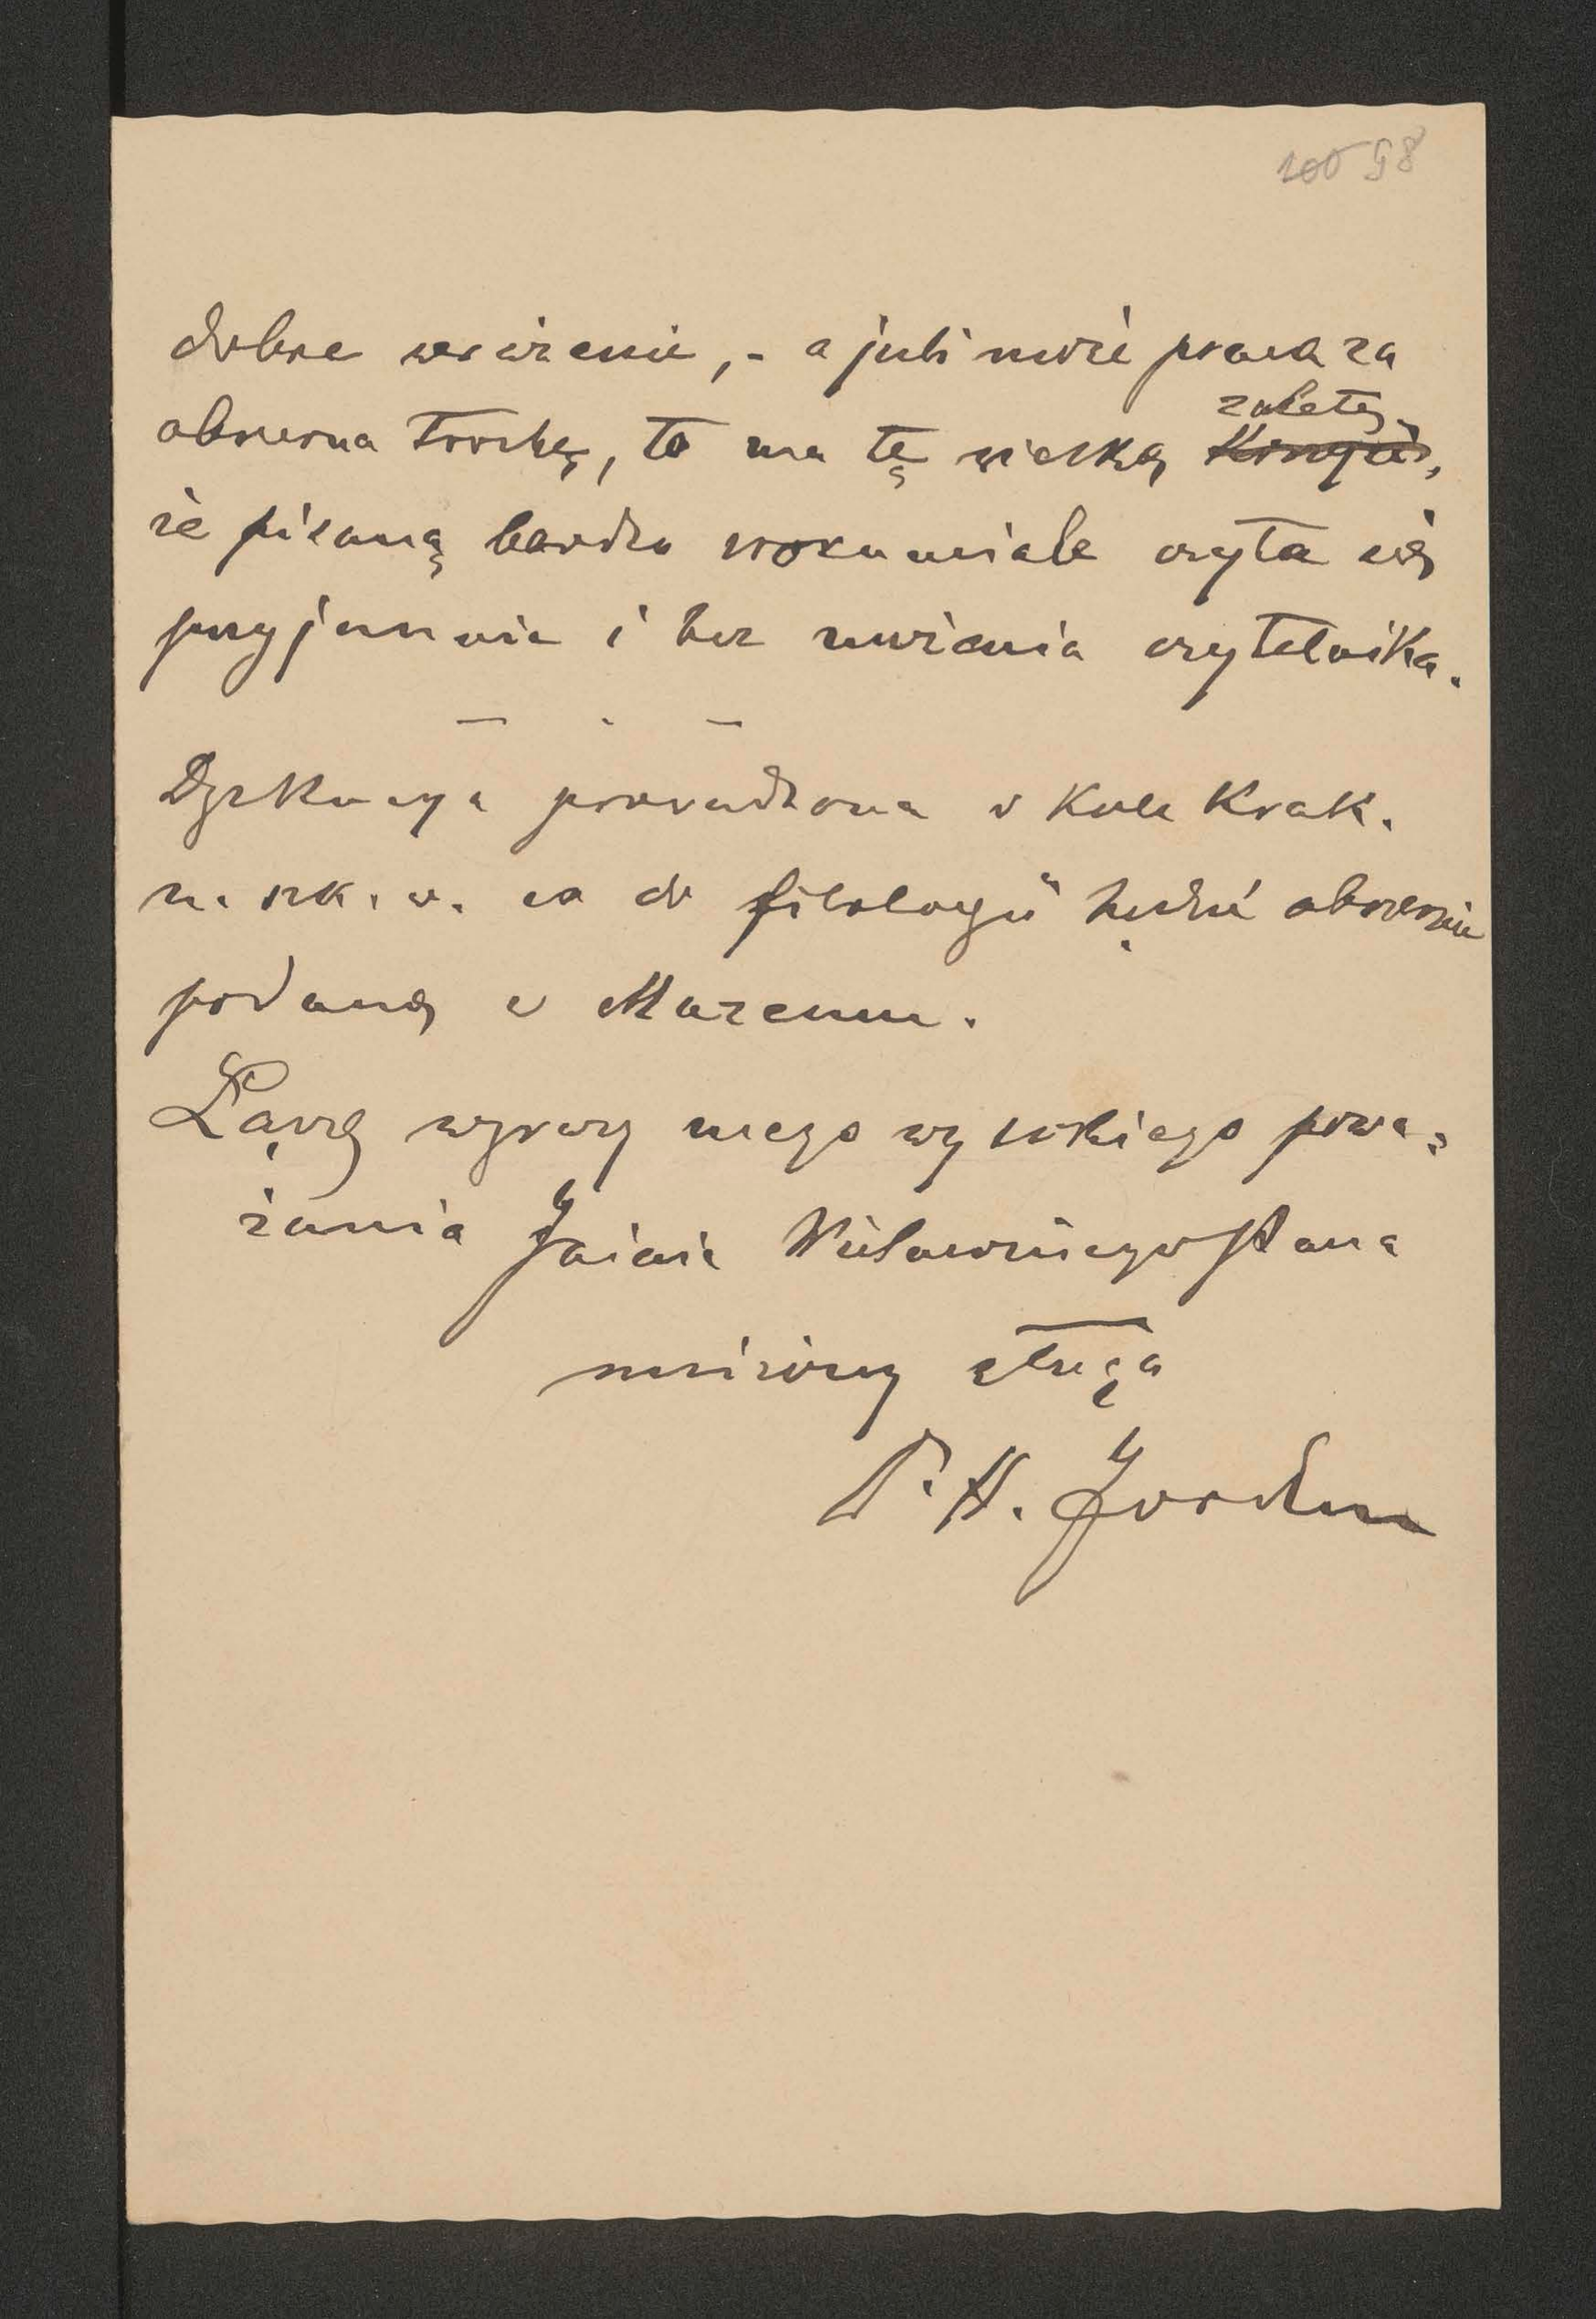 100 98
dobre wrażenie, - a jeśli może praca za
zaletę
obszerna trochę, to ma tę wielką
że pisaną bardzo zrozumiale czyta się
przyjemnie i bez znużenia czytelnika.
Dyskusya prowadzona w Kole Krak.
n. szk. w. co do filologii będzie obszernie
podaną w Muzeum.
Łączę wyrazy mego wysokiego powa-
żania Jaśnie Wielmożnego Pana
uniżony sługa
Dr. H. Jordan